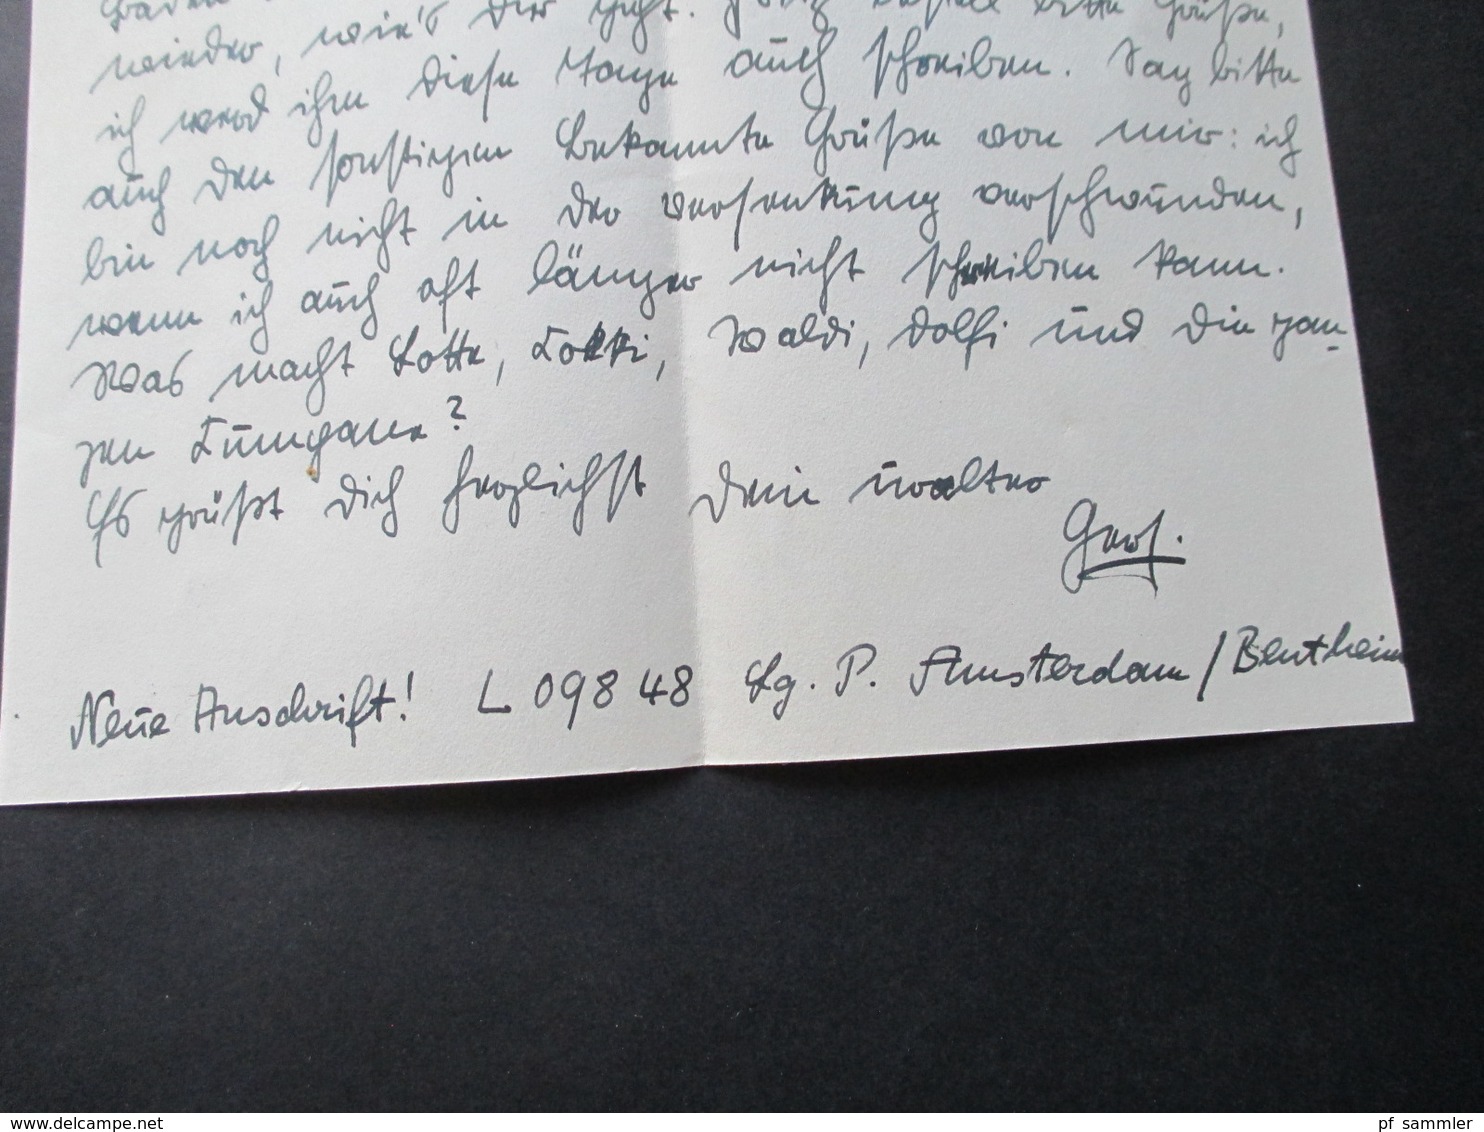 wieder, wie's Dir geht. bitte Grüße,
ich werd ihm diese Tage auch schreiben. Sag bitte
auch den sonstigen Bekannte Grüße von mir: ich
bin noch nicht in der Versenkung verschwunden,
wenn ich auch oft länger nicht schreiben kann.
Was macht Lotte, Waldi, Dolfi und die gan-
zen
Es grüßt Dich herzlichst Dein Walter
Neue Anschrift! L 09848 Lg. P. Amsterdam/Bentheim
pf_sammler